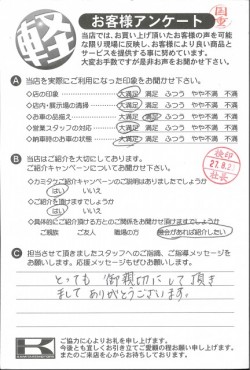 国重
軽
お客様アンケート
当店では、お買い上げ頂いたお客様の声を可能
な限り現場に反映し、お客様により良い商品と
サービスを提供する事に努めています。
大変お手数ですが是非お声をお聞かせ下さい。
A 当店を実際にご利用になった印象をお聞かせ下さい。
◇店の印象 大満足 満足 ふつう やや不満 不満
◇店内・展示場の清掃 大満足 満足 ふつう やや不満 不満
◇お車の品揃え 大満足 満足 ふつう やや不満 不満
◇営業スタッフの対応 大満足 満足 ふつう やや不満 不満
◇納車時のお車の状態 大満足 満足 ふつう やや不満 不満
B 当店はご紹介を大切にしております。
ご紹介キャンペーンについてお聞かせ下さい。
検印
社長
◇カミタケご紹介キャンペーンのご説明はありましたでしょうか
はい いいえ
◇ご紹介を頂けますでしょうか
はい いいえ
◇具体的にご紹介頂ける方とのご関係をお聞かせ頂けますでしょうか
ご親族 ご友人 職場の方 機会があれば紹介したい
C 担当させて頂きましたスタッフへのご指摘、ご指導メッセージを
お願いします。応援メッセージもぜひお願いします。
とっても 御親切にして頂き
まして ありがとうございます。
ご協力に心よりお礼を申し上げます。
今後とも宜しくお引き立てご愛顧の程お願い申し上げます。
またのご来店を心からお待ちしております。